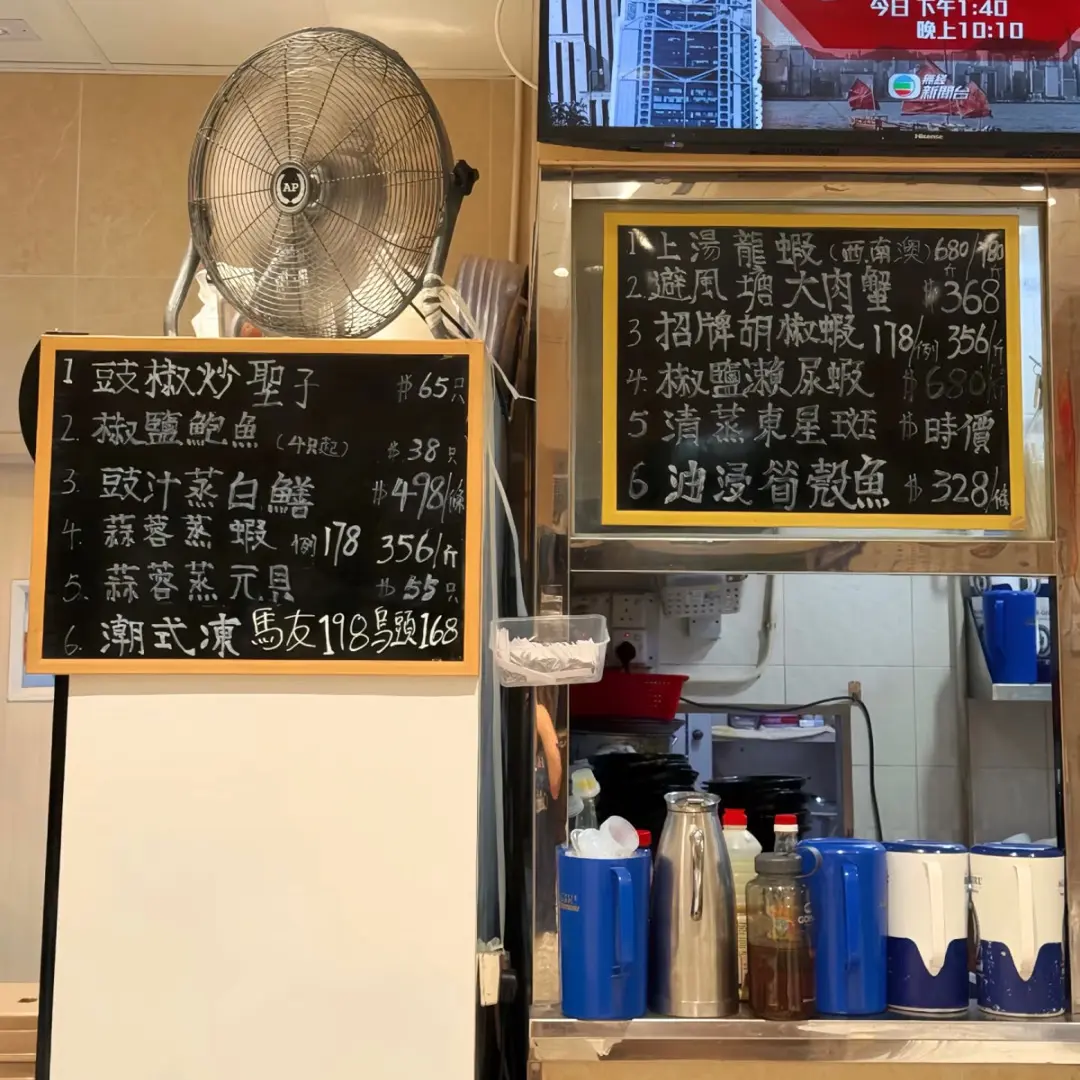 今日 下午1:40
晚上10:10
無綫
新聞台
Hisense
AP
1 豉椒炒聖子 $65只
2. 椒鹽鮑魚(4只起) $38只
3. 豉汁蒸白鱔 $498/條
4. 蒜蓉蒸蝦 例178 356/斤
5. 蒜蓉蒸元貝 $55只
6. 潮式凍 馬友198烏頭168
1 上湯龍蝦(西南澳)680/斤 780/斤
2. 避風塘大肉蟹 $368
3 招牌胡椒蝦 178/例 356/斤
4. 椒鹽瀨尿蝦 $680/斤
5 清蒸東星斑 $時價
6 油浸筍殼魚 $328/條